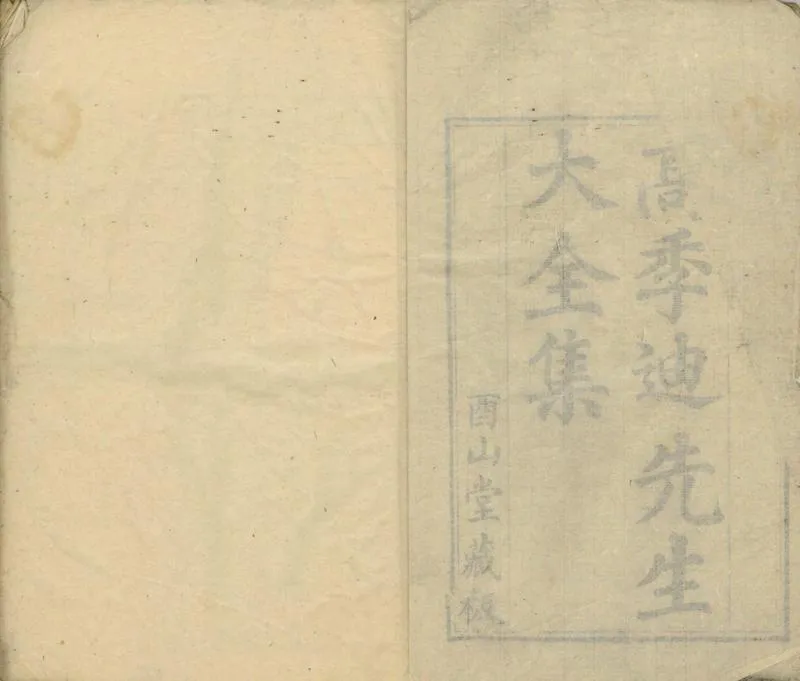 高季迪先生
大全集
酉山堂藏板